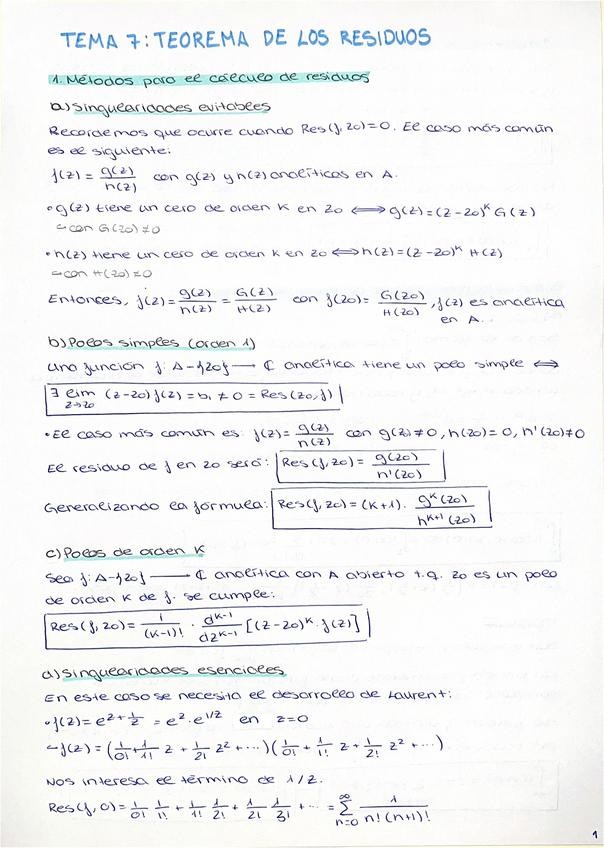 TEMA 7: TEOREMA DE LOS RESIDUOS
1. Métodos para el cálculo de residuos
a) Singularidades evitables
Recordemos que ocurre cuando Res(f, z0) = 0. El caso más común
es el siguiente:
f(z) = g(z)/h(z) con g(z) y h(z) analíticas en A.
• g(z) tiene un cero de orden K en z0 ⟺ g(z) = (z-z0)^K G(z)
↳ con G(z0) ≠ 0
• h(z) tiene un cero de orden K en z0 ⟺ h(z) = (z-z0)^K H(z)
↳ con H(z0) ≠ 0
Entonces, f(z) = g(z)/h(z) = G(z)/H(z) con f(z0) = G(z0)/H(z0), f(z) es analítica
en A.
b) Polos simples (orden 1)
Una función f: A-{z0} → ℂ analítica tiene un polo simple ⟺
∃ lim z→z0 (z-z0) f(z) = b₁ ≠ 0 = Res(z0, f)
• El caso más común es: f(z) = g(z)/h(z) con g(z) ≠ 0, h(z0) = 0, h'(z0) ≠ 0
El residuo de f en z0 será: Res(f, z0) = g(z0)/h'(z0)
Generalizando la fórmula: Res(f, z0) = (K+1) · g^K(z0)/h^(K+1)(z0)
c) Polos de orden K
Sea f: A-{z0} → ℂ analítica con A abierto t.q. z0 es un polo
de orden K de f. Se cumple:
Res(f, z0) = 1/(K-1)! · d^(K-1)/dz^(K-1) [(z-z0)^K · f(z)]
d) Singularidades esenciales
En este caso se necesita el desarrollo de Laurent:
• f(z) = e^(z+1/z) = e^z · e^(1/z) en z=0
↳ f(z) = (1/0! + 1/1! z + 1/2! z² + ···)(1/0! + 1/1! z + 1/2! z² + ···)
Nos interesa el término de 1/z.
Res(f, 0) = 1/0! 1/1! + 1/1! 1/2! + 1/2! 1/3! + ··· = ∑ n=0 ∞ 1/(n!(n+1)!)
1